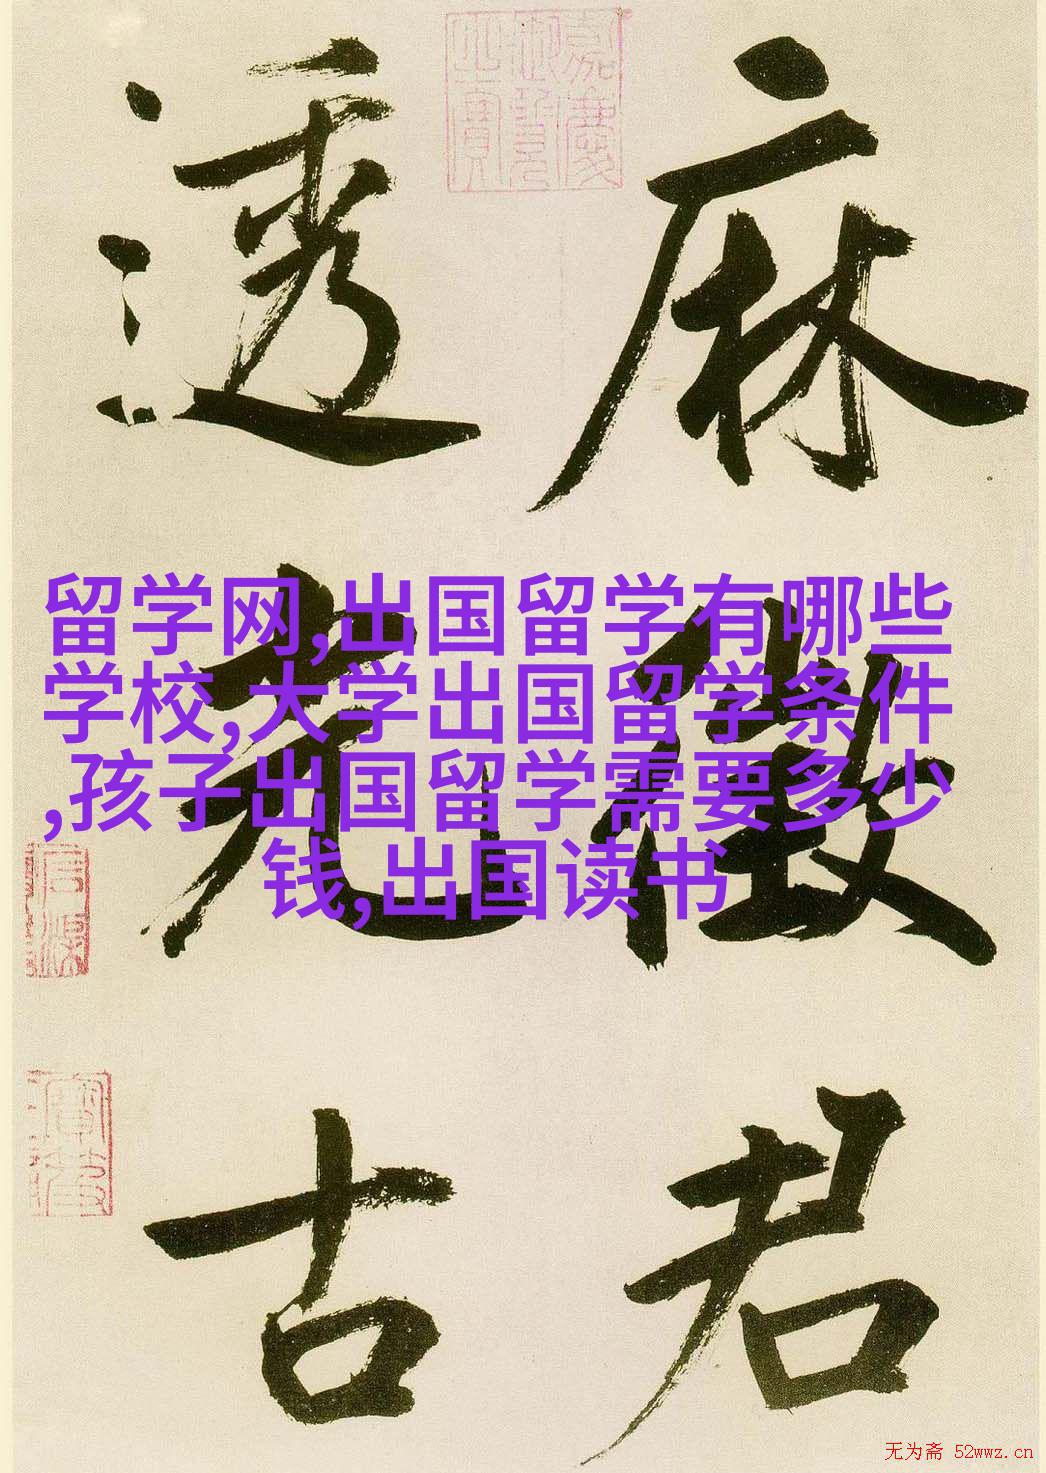 嘉慶
御覽
之寶
麻徵君
透光古
留学网,出国留学有哪些
学校,大学出国留学条件
,孩子出国留学需要多少
钱,出国读书
无为斋 52wwz.cn